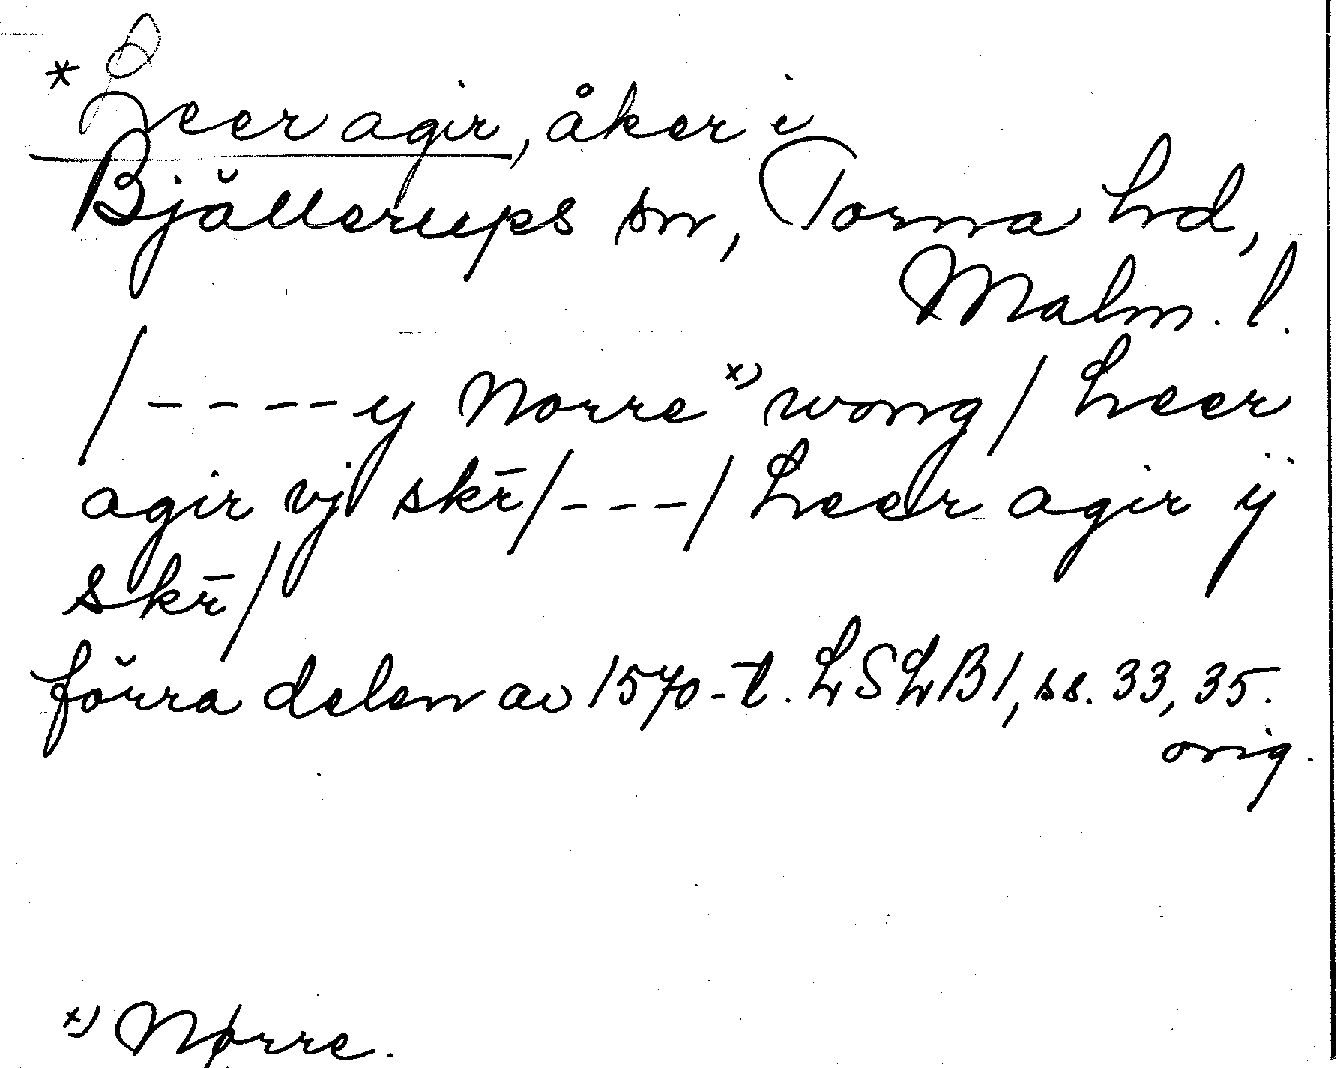 * Leer agir, åker i
Bjällerups sn, Torna hd,
Malm. l.
/ – – – – y Norre x) wong / Leer
agir vj skr̄ / – – – / Leer agir ij
skr̄ /
förra delen av 1570-t. LSLB 1, ss. 33, 35.
orig.
x) Nørre.